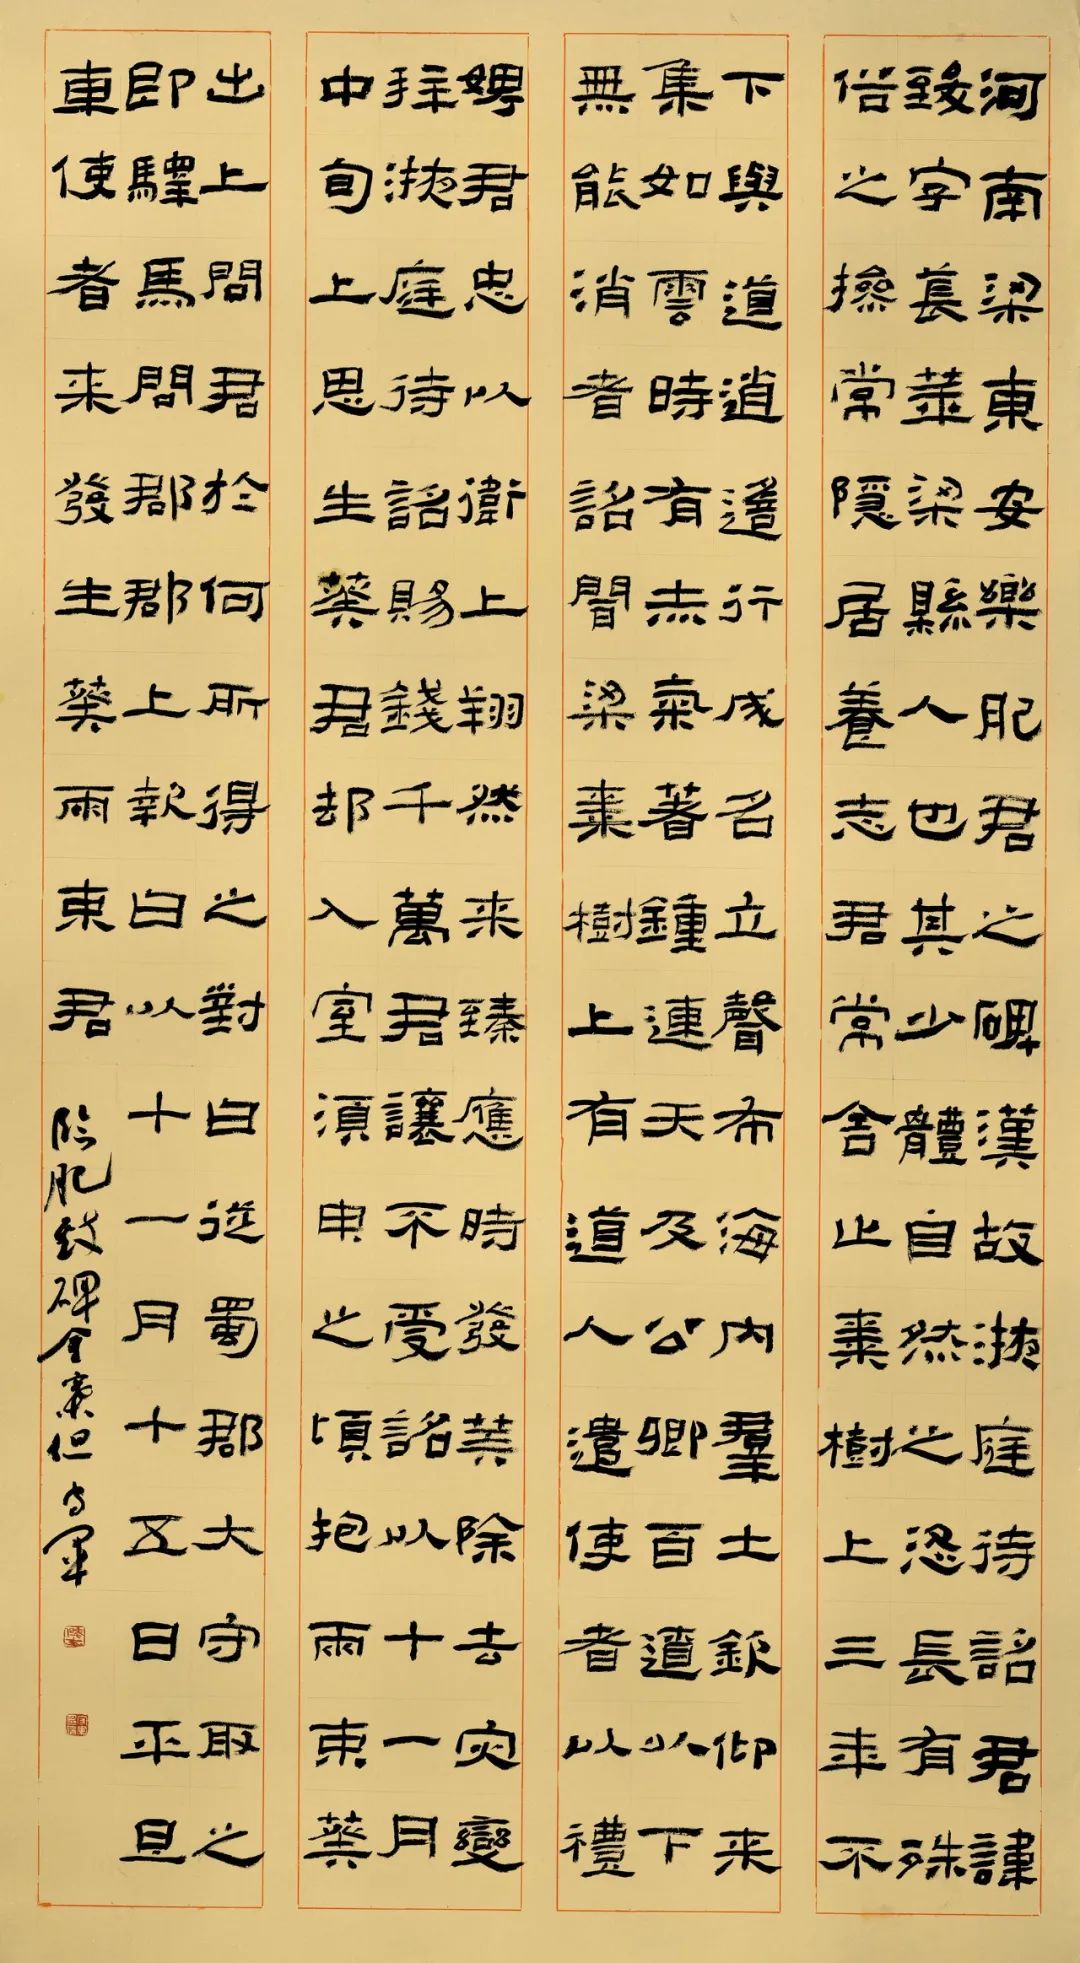 河南梁東安樂肥君之碑漢故掖庭待詔君諱
致字萇華梁縣人也其少體自然之恣長有殊
俗之操常隱居養志君常舍止棗樹上三年不
下與道逍遙行成名立聲布海內羣士欽仰来
集如雲時有赤氣著鍾連天及公卿百遼以下
無能消者詔聞梁棗樹上有道人遣使者以禮
娉君忠以衛上翔然来臻應時發筭除去灾變
拜掖庭待詔賜錢千萬君讓不受詔以十一月
中旬上思生葵君却入室須臾之頃抱兩束葵
出上問君於何所得之對曰從蜀郡大守取之
即驛馬問郡郡上報曰以十一月十五日平旦
車使者来發生葵兩束君
臨肥致碑金寨但守軍